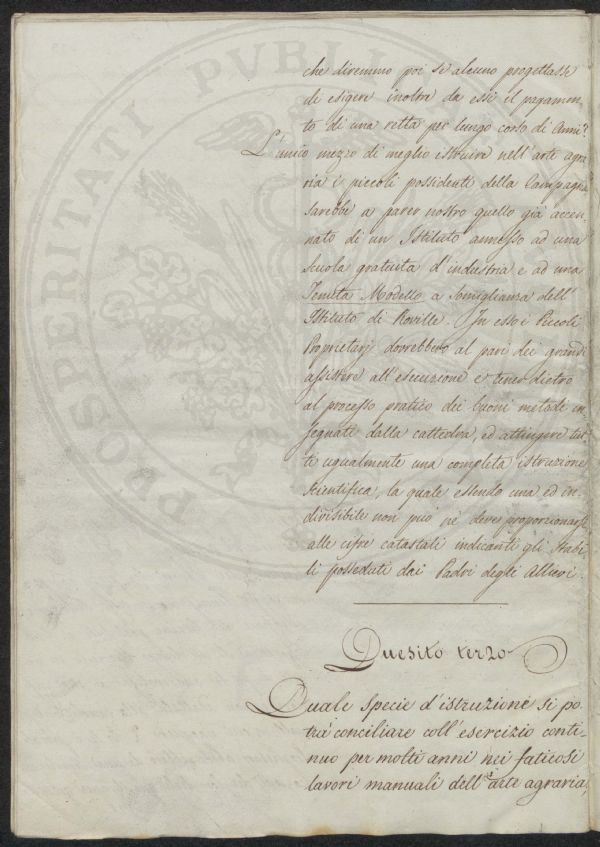 che diremmo poi se alcuno progettasse
di esigere inoltre da essi il pagamen-
to di una retta per lungo corso di Anni?
L'unico mezzo di meglio istruire nell'arte agra
ria i piccoli possidenti della Campagna
sarebbe a parer nostro quello già accen-
nato di un Istituto annesso ad una
Scuola gratuita d'industria e ad una
Tenuta Modello a somiglianza dell'
Istituto di Roville. In esso i Piccoli
Proprietarj dovrebbero al pari dei grandi
assistere all'esecuzione e tener dietro
al processo pratico dei buoni metodi in-
segnati dalla cattedra, ed attingere tut-
ti ugualmente una completa istruzione
scientifica, la quale essendo una ed in-
divisibile non può nè deve proporzionarsi
alle cifre catastali indicanti gli stabi
li posseduti dai Padri degli Allievi.
Quesito terzo
Quale specie d'istruzione si po
trà conciliare coll'esercizio conti-
nuo per molti anni nei faticosi
lavori manuali dell'arte agraria,
PROSPERITATI PVBLI